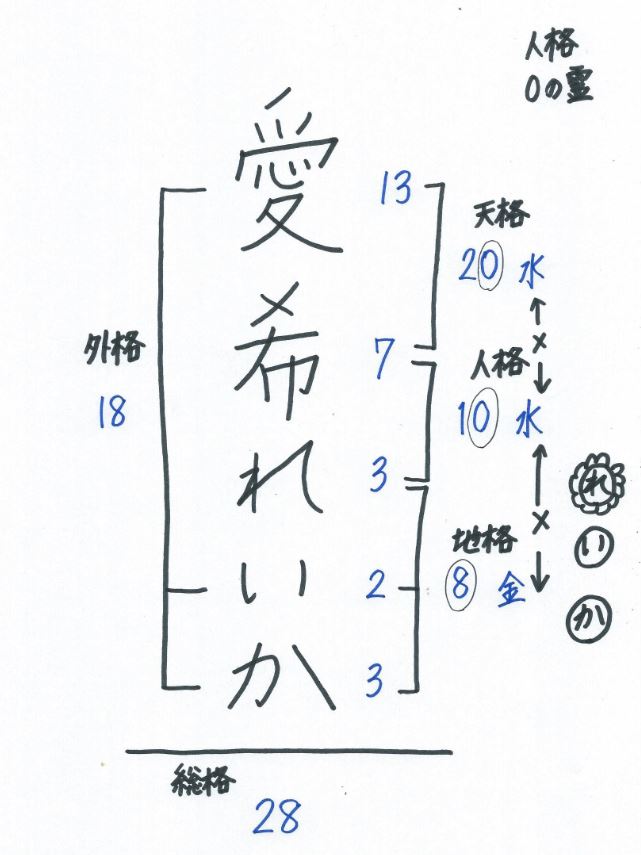 人格
0の霊
愛 13
希 7
れ 3
い 2
か 3
外格
18
天格
20 水
×
人格
10 水
×
地格
8 金
れ
い
か
総格
28